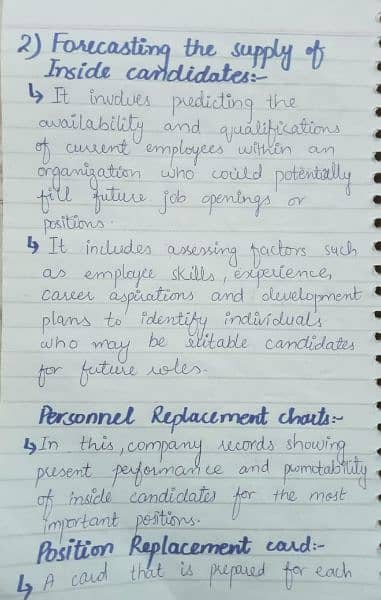 2) Forecasting the supply of
Inside candidates:-
↳ It involves predicting the
availability and qualifications
of current employees within an
organization who could potentially
fill future job openings or
positions.
↳ It includes assessing factors such
as employee skills, experience,
career aspirations and development
plans to identify individuals
who may be suitable candidates
for future roles.
Personnel Replacement charts:-
↳ In this, company records showing
present performance and promotability
of inside candidates for the most
important positions.
Position Replacement card:-
↳ A card that is prepared for each